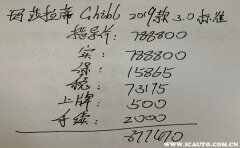 玛莎拉蒂 Ghibli 2019款 3.0标准
指导价: 788800
实: 788800
保: 15865
税: 73175
上牌: 500
手续: 2000
877670
www.icauto.com.cn